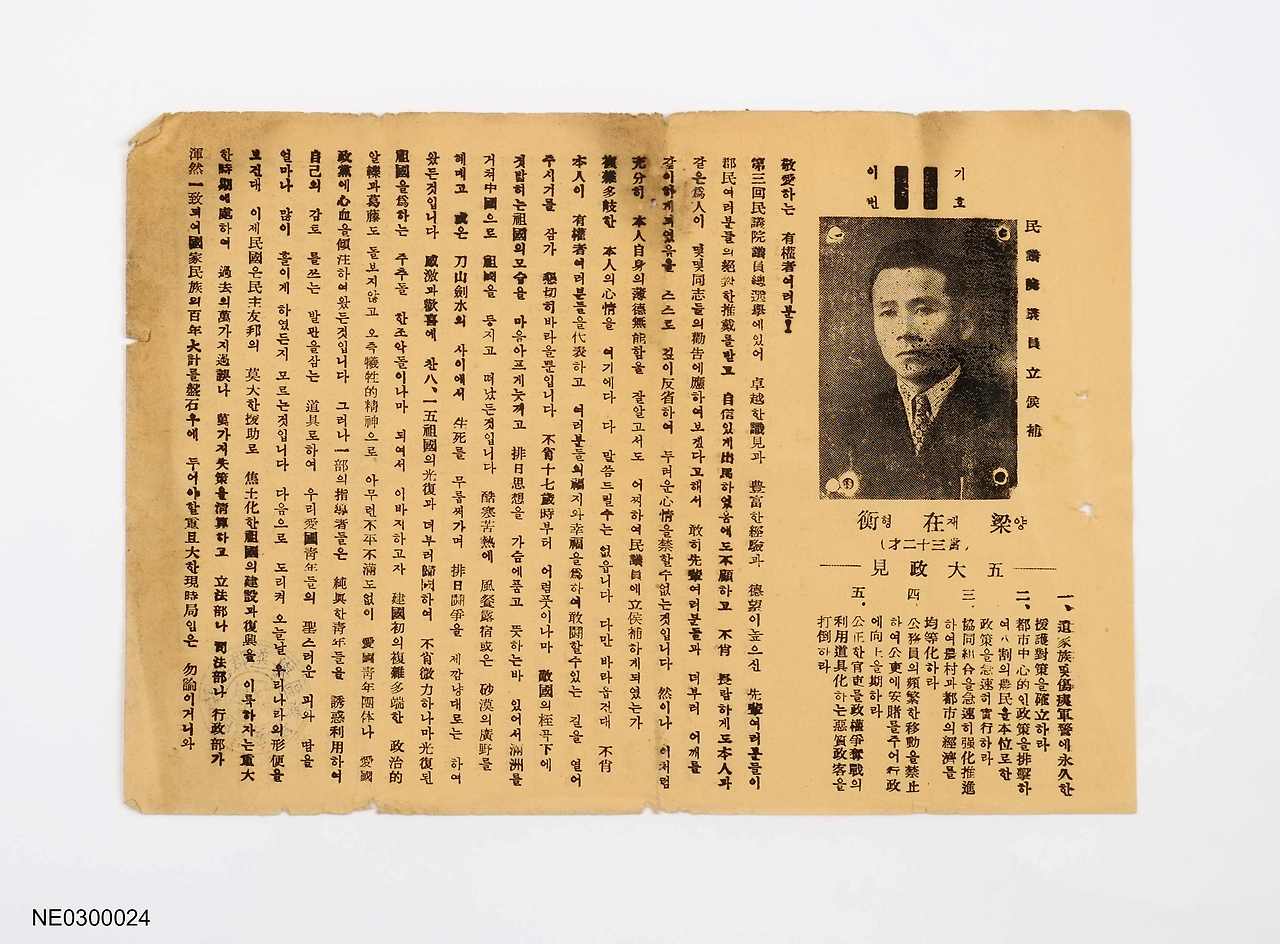 民議院議員立候補
기호
이번
梁양 在재 衡형
(當三十二才)
五大政見
一、遺家族및傷痍軍警에永久한
援護對策을確立하라
二、都市中心的인政策을排擊하
여八割의農民을本位로한
政策을急速히實行하라
三、協同組合을急速히强化推進
하여農村과都市의經濟를
均等化하라
四、公務員의頻繁한移動을禁止
하여公吏에安睹를주어行政
에向上을期하라
五、公正한官吏를政權爭奪戰의
利用道具化하는惡質政客을
打倒하라
敬愛하는 有權者여러분!
第三回民議院議員總選擧에있어 卓越한識見과 豊富한經驗과 德望이높으신 先輩여러분들이
郡民여러분들의絕對한推戴를받고 自信있게出馬하였음에도不顧하고 不肖 외람하게도本人과
같은爲人이 몇몇同志들의勸告에應하여보겠다고해서 敢히先輩여러분들과 더부러 어깨를
같이하게되였음을 스스로 깊이反省하여 두려운心情을禁할수없는것입니다 然이나 이처럼
充分히 本人自身의薄德無能함을 잘알고서도 어찌하여民議員에立候補하게되였는가
複雜多岐한 本人의心情을 여기에다 다 말씀드릴수는 없읍니다 다만 바라옵건대 不肖
本人이 有權者여러분들을代表하고 여러분들의福지와幸福을爲하여敢鬪할수있는 길을 열어
주시기를 잠가 懇切히바라을뿐입니다 不省十七歲時부터 어렴풋이나마 敵國의桎梏下에
짓밟히는祖國의모습을 마음아프게늣껴고 排日思想을 가슴에품고 뜻하는바 있어서滿洲를
거처中國으로 祖國을 등지고 떠났든것입니다 酷寒苦熱에 風餐露宿或은 砂漠의廣野를
헤매고 或은 刀山劍水의 사이에서 生死를 무릅써가며 排日鬪爭을 제깜냥대로는 하여
왔든것입니다 感激과歡喜에 찬八、一五祖國의光復과 더부러歸國하여 不省微力하나마光復된
祖國을爲하는 주추돌 한조악돌이나마 되여서 이바지하고자 建國初의複雜多端한 政治的
알轢과葛藤도 돌보지않고 오즉犧牲的精神으로 아무런不平不滿도없이 愛國靑年團体나 愛國
政黨에心血을傾注하여왔든것입니다 그러나一部의指導者들은 純眞한靑年들을 誘惑利用하여
自己의 감토 를쓰는 발판을삼는 道具로하여 우리愛國靑年들의 聖스러운 피와 땀을
얼마나 많이 흘이게 하였든지 모르는것입니다 다음으로 도리켜 오늘날 우리나라의形便을
보건대 이제民國은民主友邦의 莫大한援助로 焦土化한祖國의建設과復興을 이룩하자는重大
한時期에處하여 過去의萬가지過誤나 萬가지失策을淸算하고 立法部나 司法部나 行政部가
渾然一致되여國家民族의百年大計를盤石우에 두어야할重且大한現時局임은 勿論이거니와
NE0300024